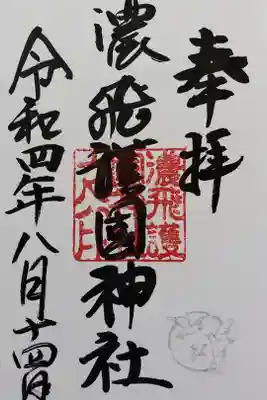 奉拝
濃飛護國神社
濃飛護
令和四年八月十四日